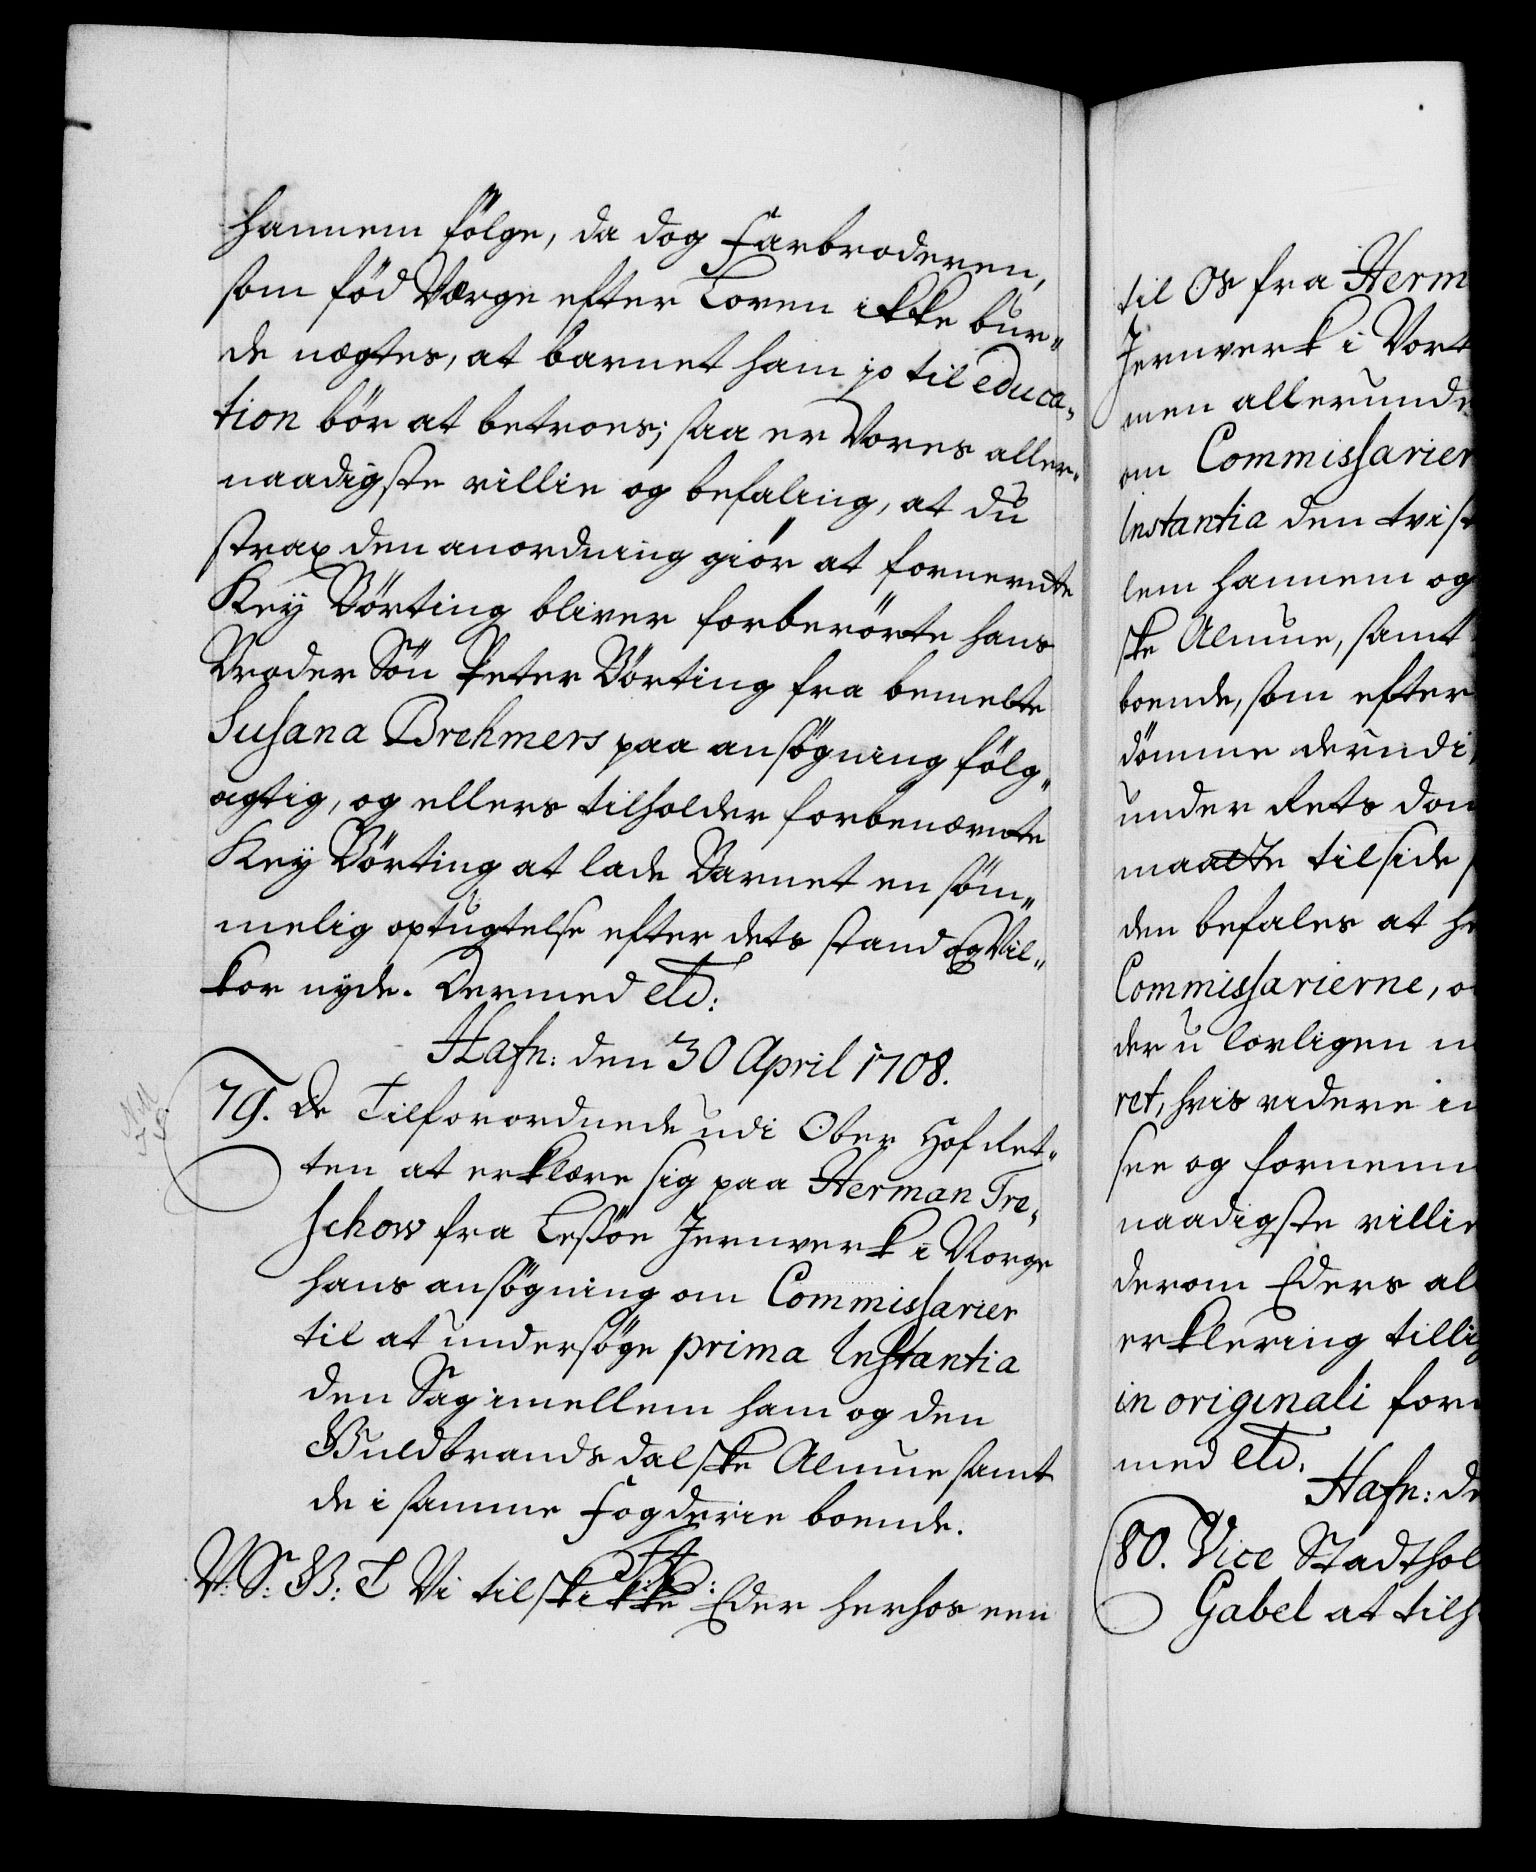 hannem fölge, da dog Farbroderen,
som föd Værge efter Loven ikke bur„
de nægtes, at barnet ham jo til educa„
tion bör at betroes; saa er Vores aller„
naadigste villie og befaling, at du
strax den anordning giör at fornevnte
Key Börting bliver forberörte hans
Broder Sön Peter Börting fra bemelte
Susana Brehmers paa ansögning fölg„
agtig, og ellers tilholder forbenævnte
Key Börting at lade Barnet en söm„
melig optugtelse efter dets stand og Vil„
kor nyde. Dermed etc:
Hafn: den 30 April 1708.
79. De Tilforordnede udi Ober Hof Ret„
ten at erklære sig paa Herman Tre„
schow fra Lessöe Jernverk i Norge
hans ansögning om Commissarier
til at undersöge prima Instantia
den Sag imellem ham og den
Guldbrandsdalske Almue samt
de i samme Fogderie boende.
V: S: G: T Vi tilskikke Eder herhos een
til Os fra Herm
Jernverk i Vort
men allerunde
om Commissarier
Instantia den tvist
lem hannem og
ske Almue, samt
boende, som efter
dömme derudi
under Rets dom
maatte tilside
den befales at he
Commissarierne, o
der u lovligen
ret, hvis videre
see og fornem
naadigste villie
derom Eders al
erklering tillig
in originali for
med etc.
Hafn: de
80. Vice Stadthol
Gabel at tilh